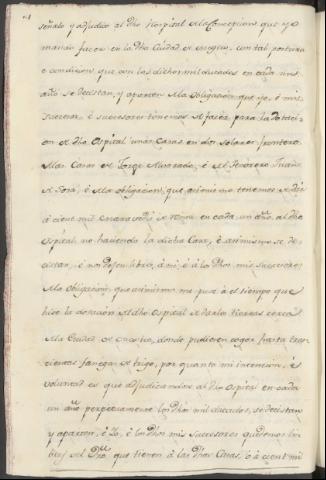 señalo y adjudico al dho Hospital de la Concepcion que yo
mando facer en la dha Ciudad de Mexico, con tal postura
e condicion que con los dichos mil ducados en cada un
año se desistan, y aparten de la obligacion que yo, é mis
sucesores tenemos de facer para la dotacion
de dho Ospital unas Casas en dos solares frontero
de las Casas de Jorge Alvarado, é del thesorero Juan
de Sosa, é de la obligacion, que asimismo tenemos de dar
cient mil maravedis de renta en cada un año al dho
Ospital, no haciendo la dicha Casa, é asimismo se de-
sistan, é nos dejen libres, á mi, é á los dhos mis sucesores
de la obligacion, que asimismo me puse á el tiempo que
hice la donacion al dho Ospital de darle tierras cerca
de la Ciudad de Mexico, donde pudiesen coger hasta tres-
cientas fanegas de trigo, por quanto mi intencion, é
voluntad es que adjudicandose al dho Ospital en cada
un año perpetuamente los dhos mil ducados, se desistan
y aparten, é Yo, é los dhos mis sucesores quedemos li-
bres del que tienen á las dhas Casas, é á cient mil